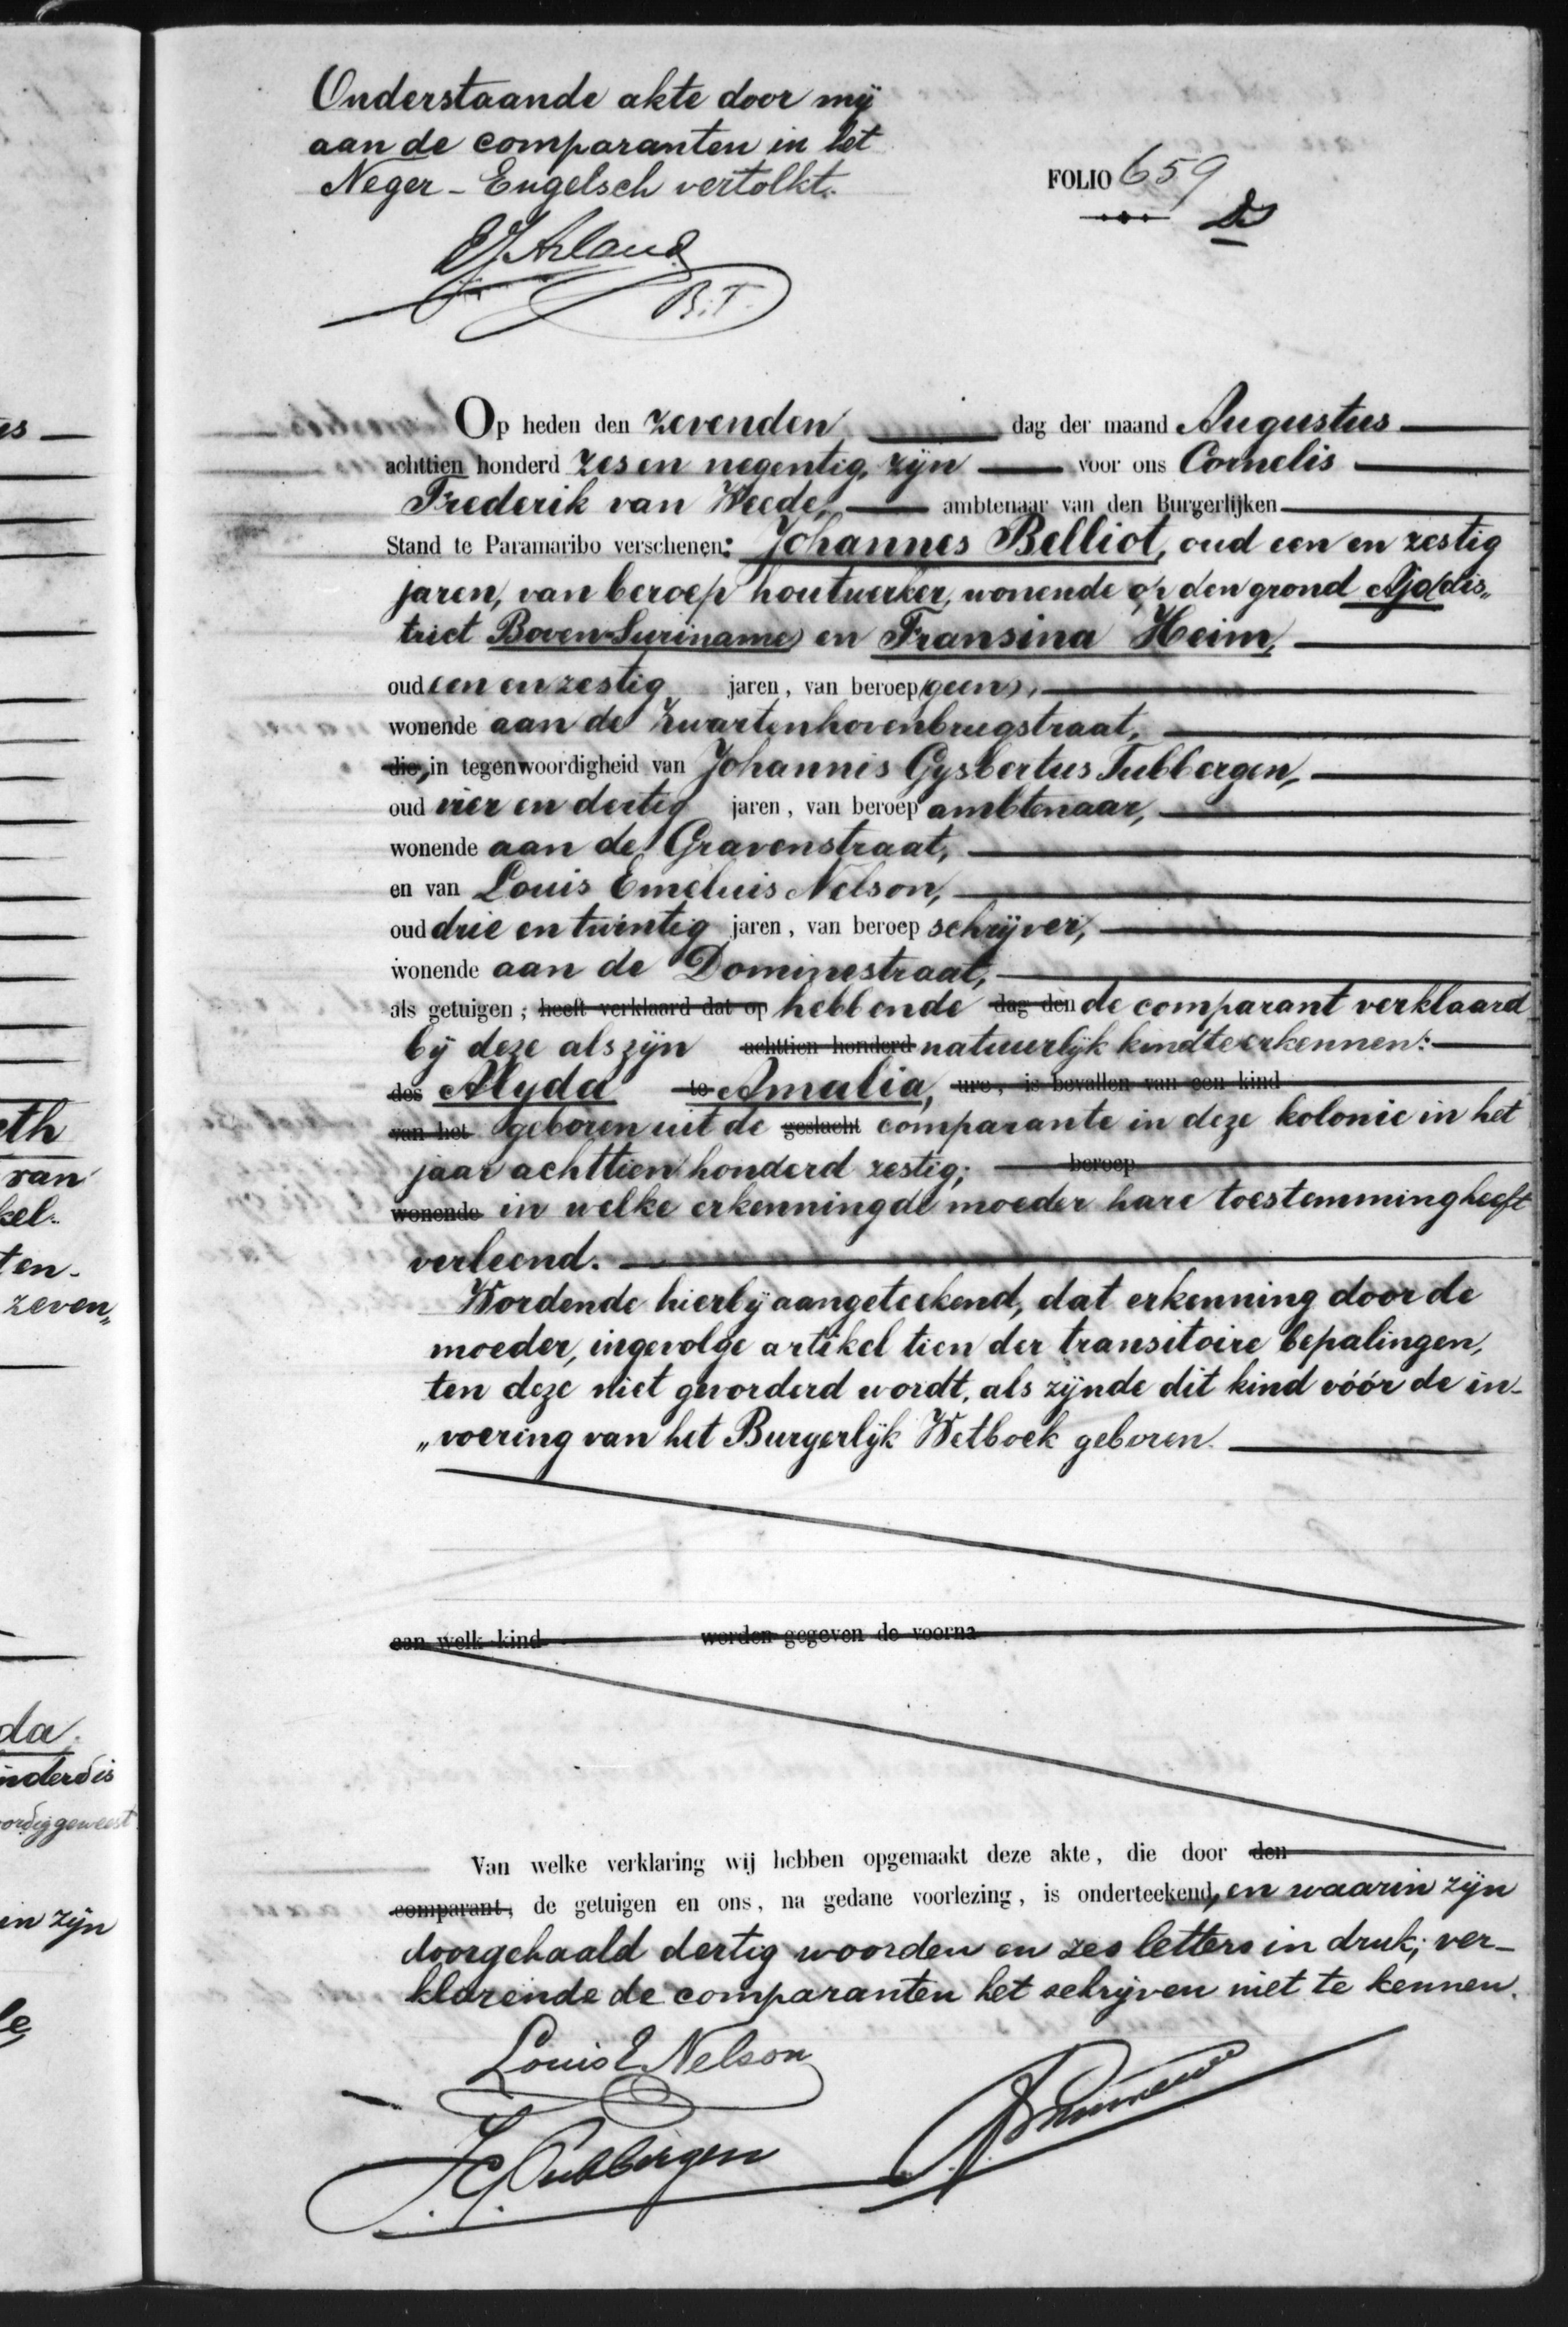 Onderstaande akte door mij
aan de comparanten in het
Neger-Engelsch vertolkt.
B.T.
FOLIO 659
Op heden den zevenden dag der maand Augustus
achttien honderd zes en negentig, zijn voor ons Cornelis
Frederik van Weede, ambtenaar van den Burgerlijken
Stand te Paramaribo verschenen: Johannes Belliot, oud een en zestig
jaren, van beroep houtwerker, wonende op den grond Ajo (dis„
trict Boven-Suriname) en Fransina Heim,
oud een en zestig jaren, van beroep (geen),
wonende aan de Zwartenhovenbrugstraat,
die, in tegenwoordigheid van Johannis Gysbertus Tubbergen,
oud vier en dertig jaren, van beroep ambtenaar,
wonende aan de Gravenstraat,
en van Louis Emeluis Nelson,
oud drie en twintig jaren, van beroep schrijver,
wonende aan de Dominestraat,
als getuigen; heeft verklaard dat op hebbende dag den de comparant verklaard
bij deze als zijn achttien honderd natuurlijk kind te erkennen:
des Alyda te Amalia, ure, is bevallen van een kind
van het geboren uit de geslacht comparante in deze kolonie in het
jaar achttien honderd zestig; beroep
wonende in welke erkenning de moeder hare toestemming heeft
verleend.
Wordende hierbij aangeteekend, dat erkenning door de
moeder, ingevolge artikel tien der transitoire bepalingen,
ten deze niet gevorderd wordt, als zijnde dit kind vóór de in-
„voering van het Burgerlijk Wetboek geboren.
aan welk kind worden gegeven de voorna
Van welke verklaring wij hebben opgemaakt deze akte, die door den
comparant, de getuigen en ons, na gedane voorlezing, is onderteekend, en waarin zijn
doorgehaald dertig woorden en zes letters in druk; ver-
klarende de comparanten het schrijven niet te kennen.
Louis E Nelson
J. G. Tubbergen